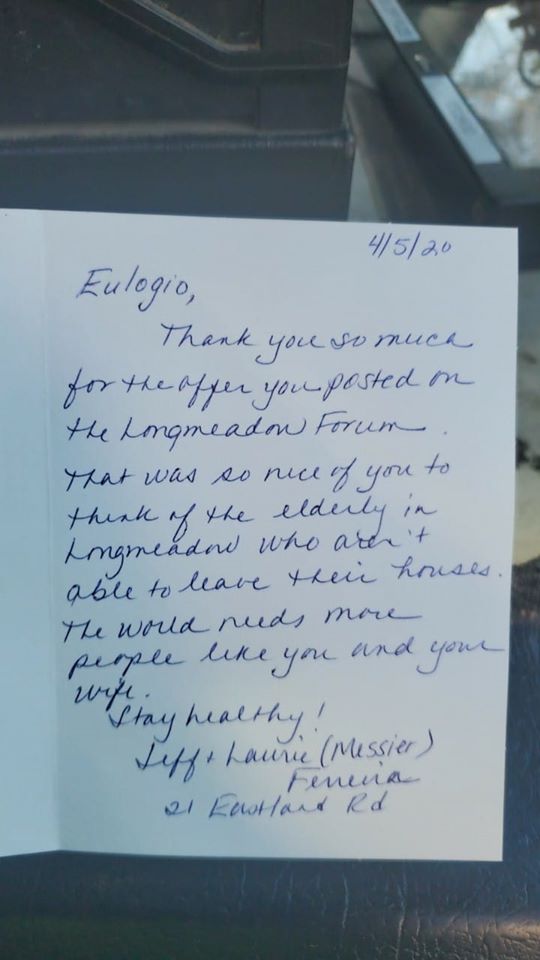 4/5/20
Eulogio,
Thank you so much
for the offer you posted on
the Longmeadow Forum.
That was so nice of you to
think of the elderly in
Longmeadow who aren't
able to leave their houses.
The world needs more
people like you and your
wife.
Stay healthy!
Jeff + Laurie (Messier)
Ferreira
21 Eastland Rd